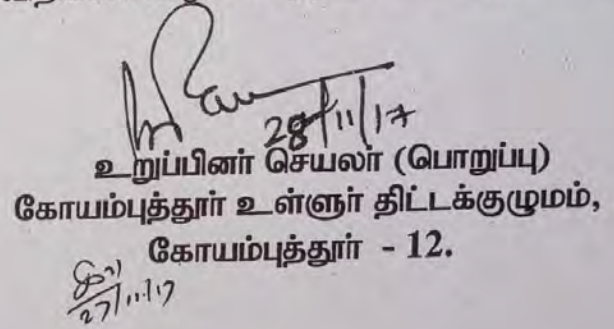 28/11/17
உறுப்பினர் செயலர் (பொறுப்பு)
கோயம்புத்தூர் உள்ளூர் திட்டக்குழுமம்,
கோயம்புத்தூர் - 12.
27/11/17